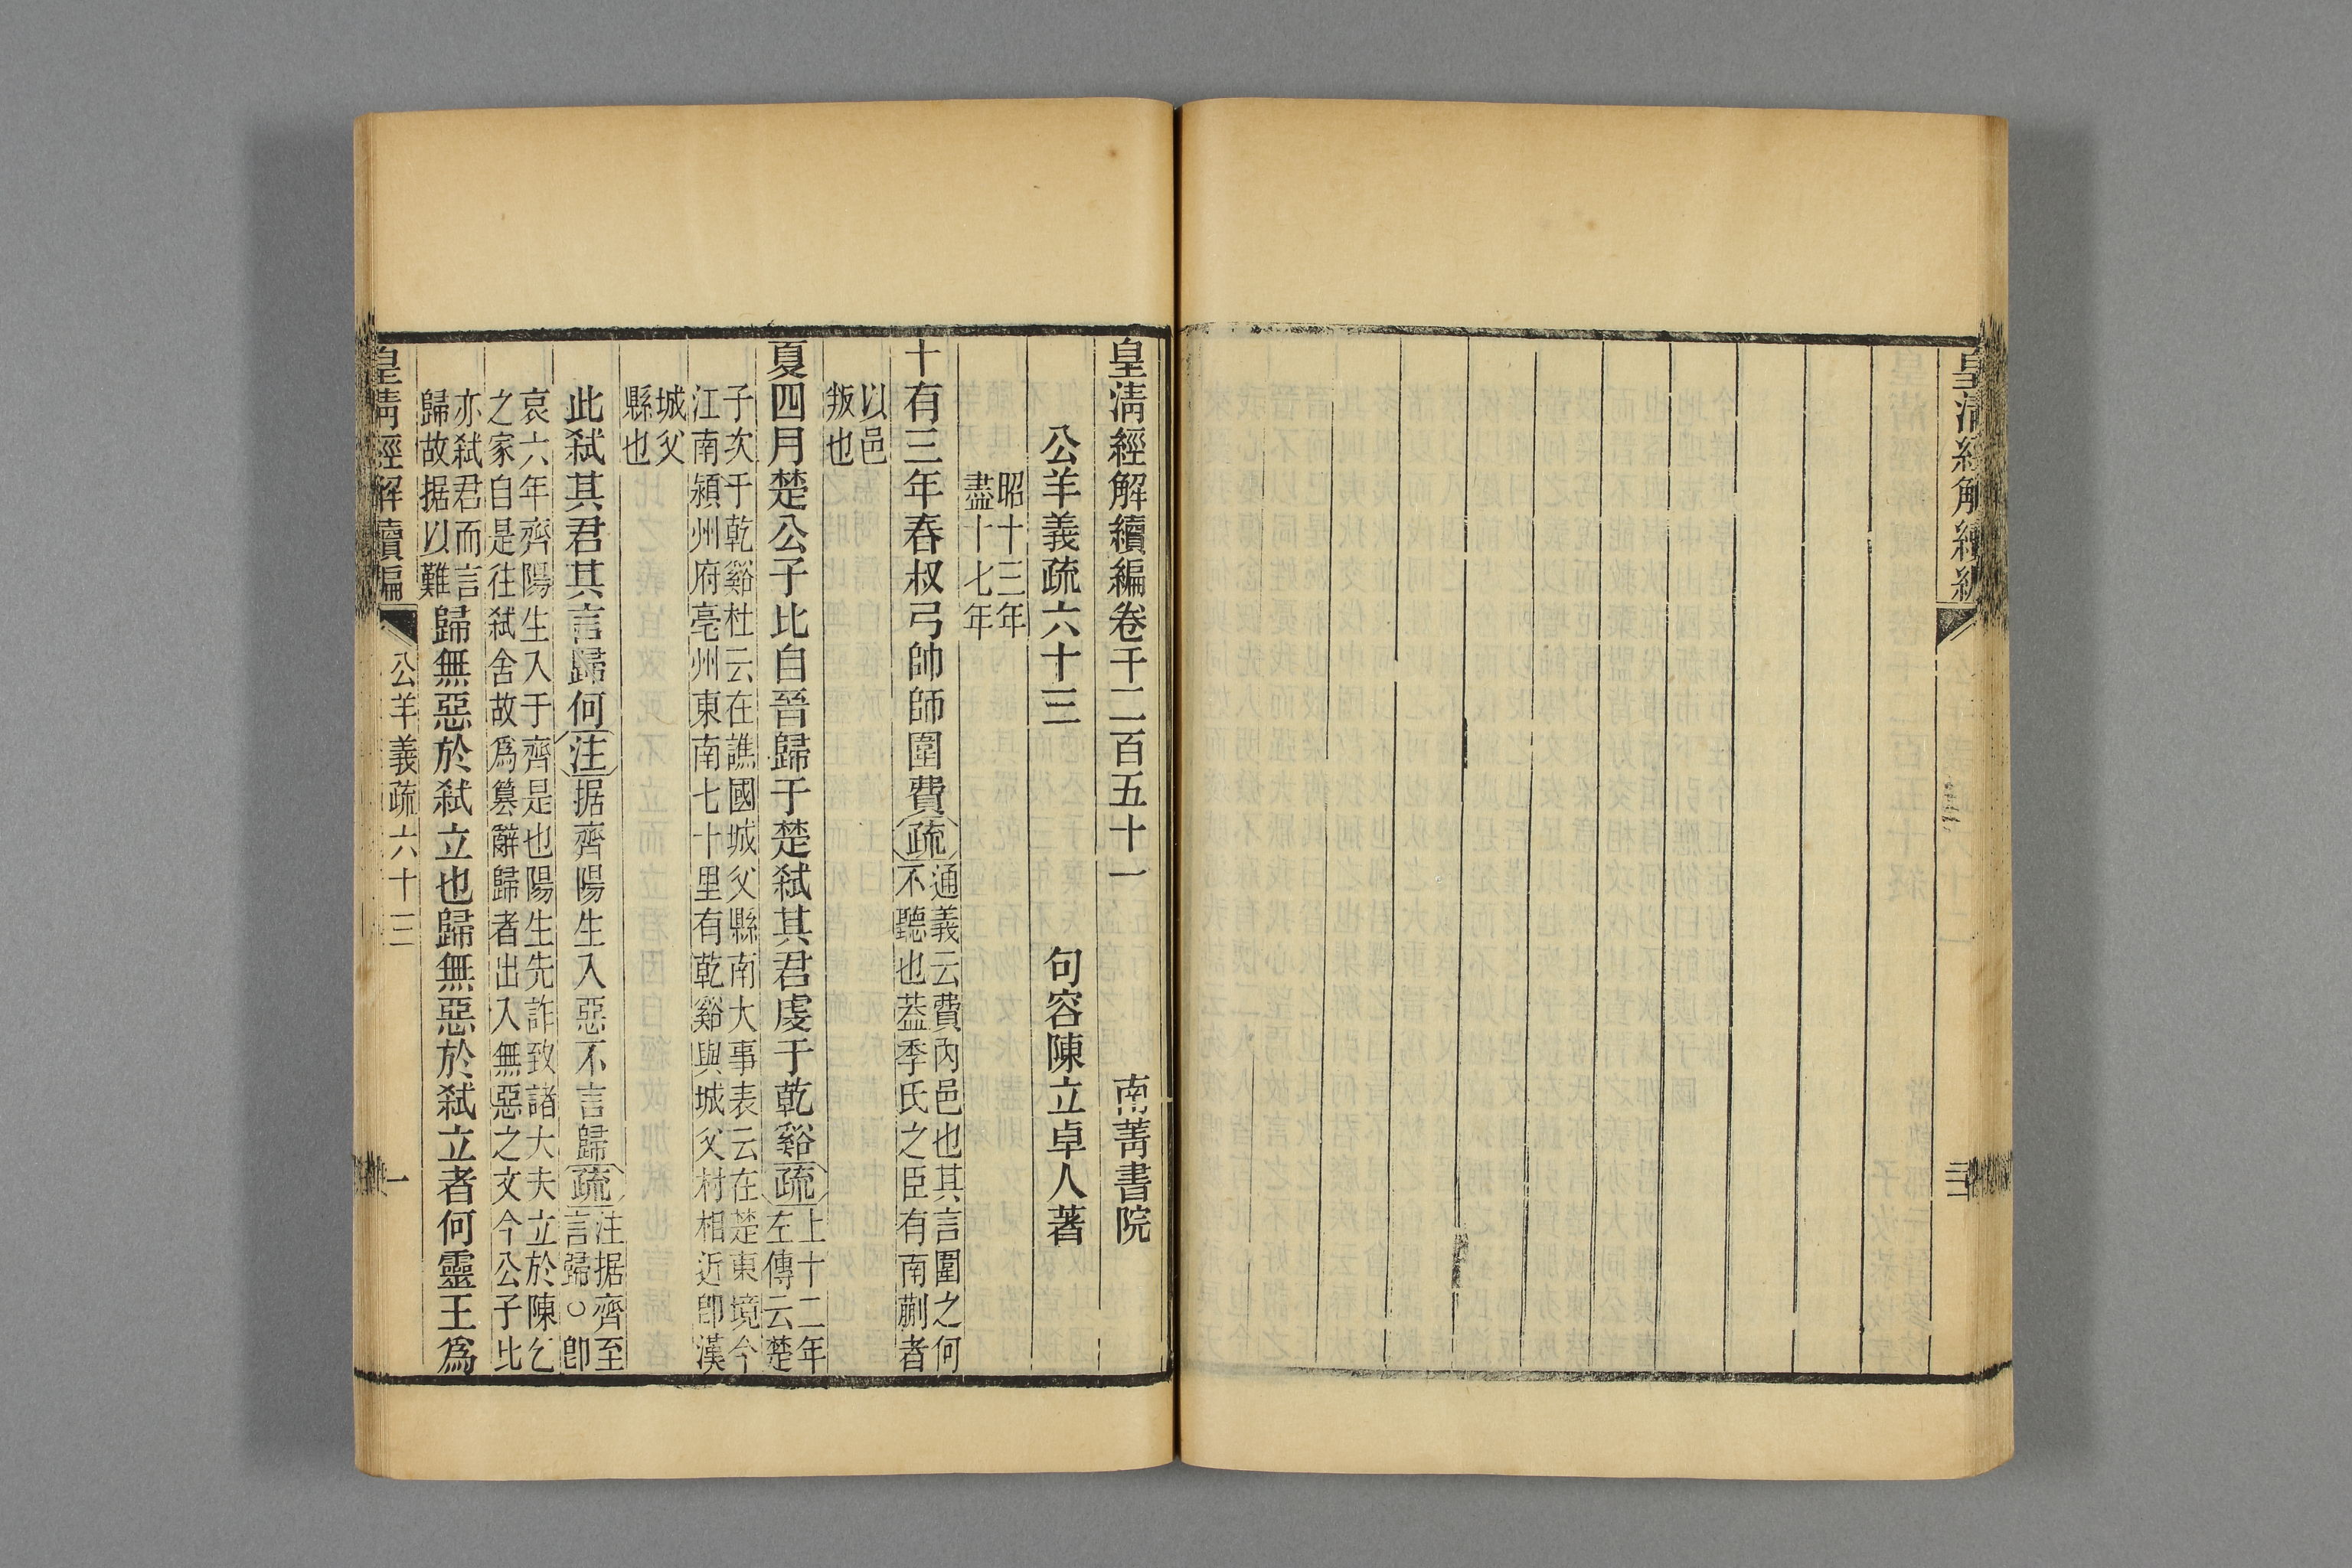 皇清經解續編
三
皇清經解續編卷千二百五十一
南菁書院
公羊義疏六十三
句容陳立卓人著
昭十三年
盡十七年
十有三年春叔弓帥師圍費疏
通義云費內邑也其言圍之何
不聽也蓋季氏之臣有南蒯者
以邑
叛也
夏四月楚公子比自晉歸于楚弒其君虔于乾谿疏
上十二年
左傳云楚
子次于乾谿杜云在譙國城父縣南大事表云在楚東境今
江南潁州府亳州東南七十里有乾谿與城父村相近卽漢
城父
縣也
此弒其君其言歸何注据齊陽生入惡不言歸疏
注据齊至
言歸○卽
哀六年齊陽生入于齊是也陽生先詐致諸大夫立於陳乞
之家自是往弒舍故爲篡辭歸者出入無惡之文今公子比
亦弒君而言
歸故据以難
歸無惡於弒立也歸無惡於弒立者何靈王爲
皇清經解續編
公羊義疏六十三
一